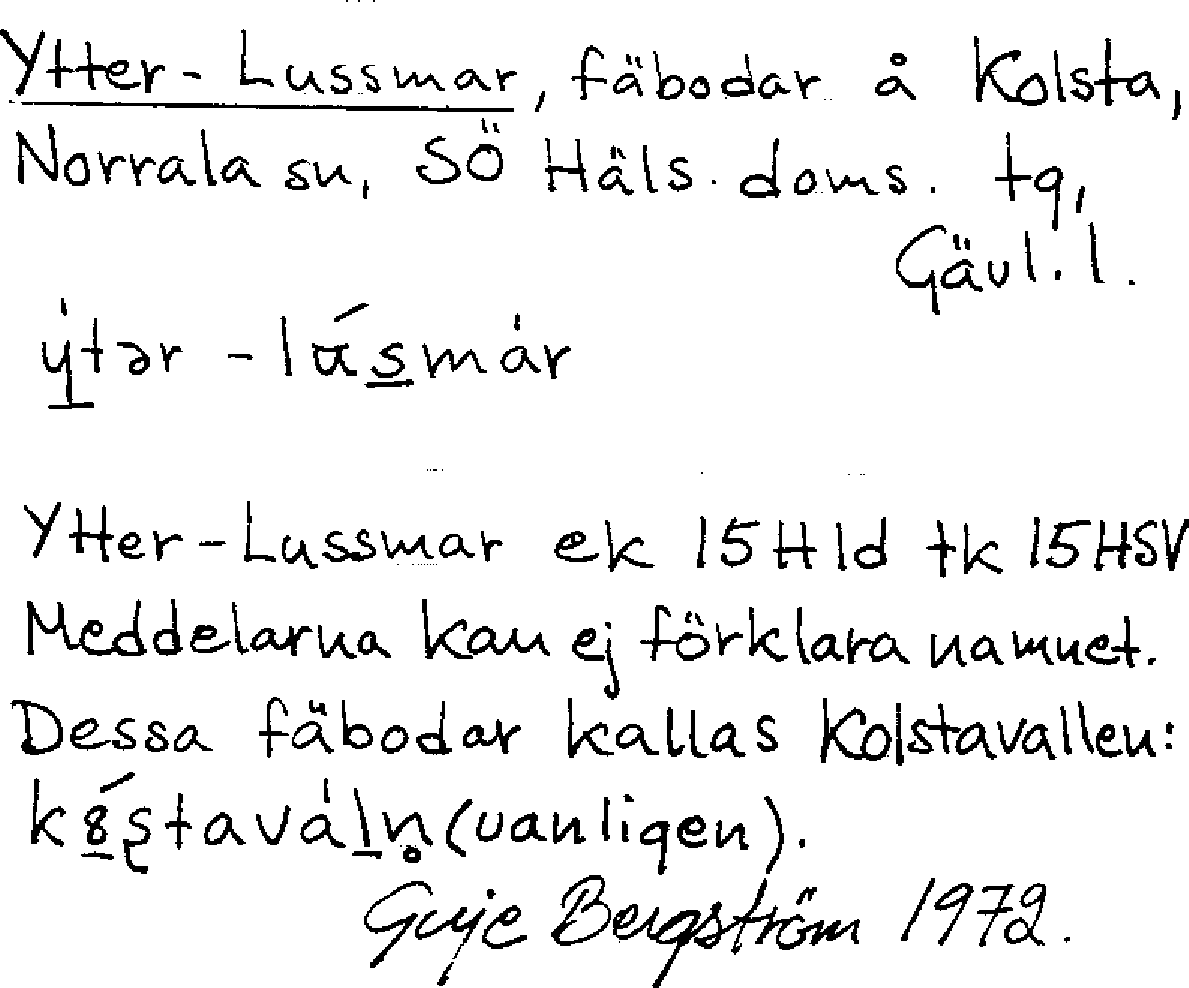 Ytter-Lussmar, fäbodar å Kolsta,
Norrala sn, SÖ Häls. doms. tg,
Gävl. l.
ýtər - lúsmàr
Ytter-Lussmar ek 15H1d tk 15HSV
Meddelarna kan ej förklara namnet.
Dessa fäbodar kallas Kolstavallen:
(vanligen).
Guje Bergström 1972.